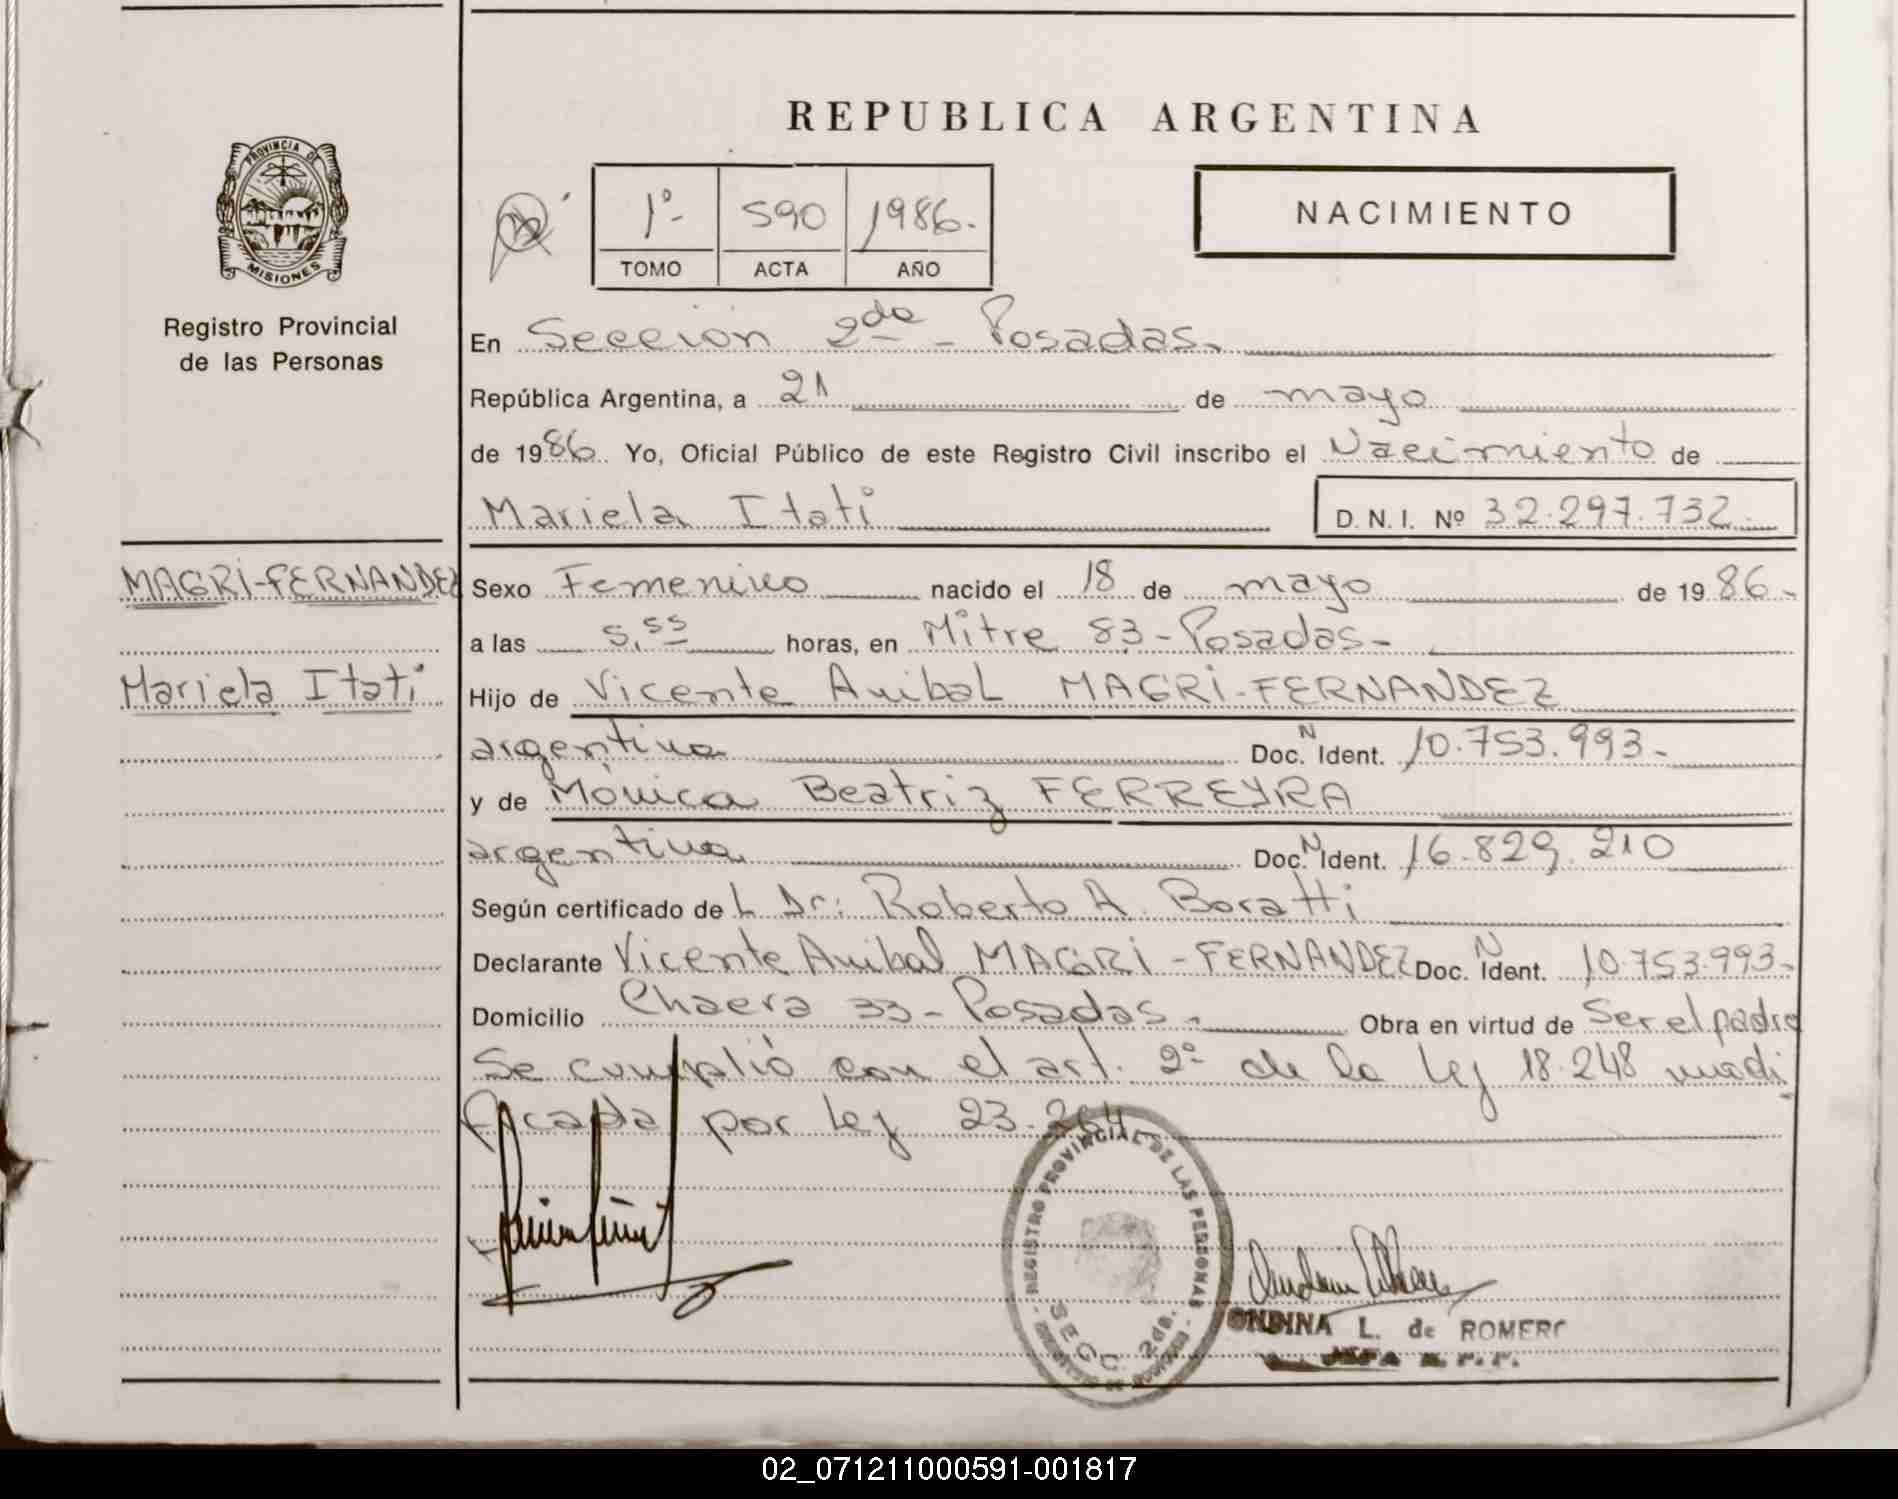 REPUBLICA ARGENTINA
PROVINCIA DE
MISIONES
Registro Provincial
de las Personas
1º- 590 1986.-
TOMO ACTA AÑO
NACIMIENTO
En Seccion 2da - Posadas.
República Argentina, a 21 de mayo
de 1986. Yo, Oficial Público de este Registro Civil inscribo el Nacimiento de
Mariela Itati
D.N.I. Nº 32.297.732.-
MAGRI-FERNANDEZ
Mariela Itati
Sexo Femenino nacido el 18 de mayo de 1986.-
a las 5,55 horas, en Mitre 83-Posadas-
Hijo de Vicente Anibal MAGRI-FERNANDEZ
argentina Doc. N Ident. 10.753.993-
y de Mónica Beatriz FERREYRA
argentina Doc. N Ident. 16.829.210
Según certificado de L Dr: Roberto A. Boratti
Declarante Vicente Anibal MAGRI-FERNANDEZ Doc. N Ident. 10.753.993-
Domicilio 33-Posadas. Obra en virtud de Ser el padre
Se cumplió con el art. 2º de la Ley 18.248 modi
ficada por Ley 23.264
REGISTRO PROVINCIAL DE LAS PERSONAS
SECC. 2da.
ONDINA L. de ROMERO
JEFA
02_071211000591-001817